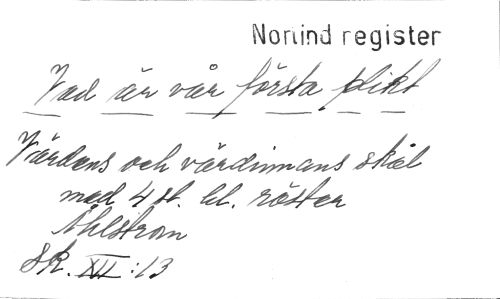 Norlind register
Vad är vår första plikt
Värdens och värdinnans skål
med 4 st. bl. röster
Åhlstrom
Sk. XII:13